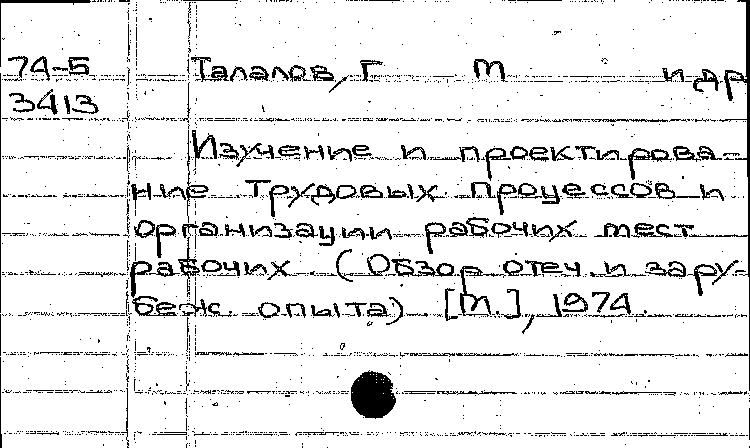 74-5 Талалов, Г М и др
3413
Изучение и проектирова-
ние трудовых процессов и
организации рабочих мест
рабочих. (Обзор отеч. и зару-
беж. опыта) [М.], 1974.